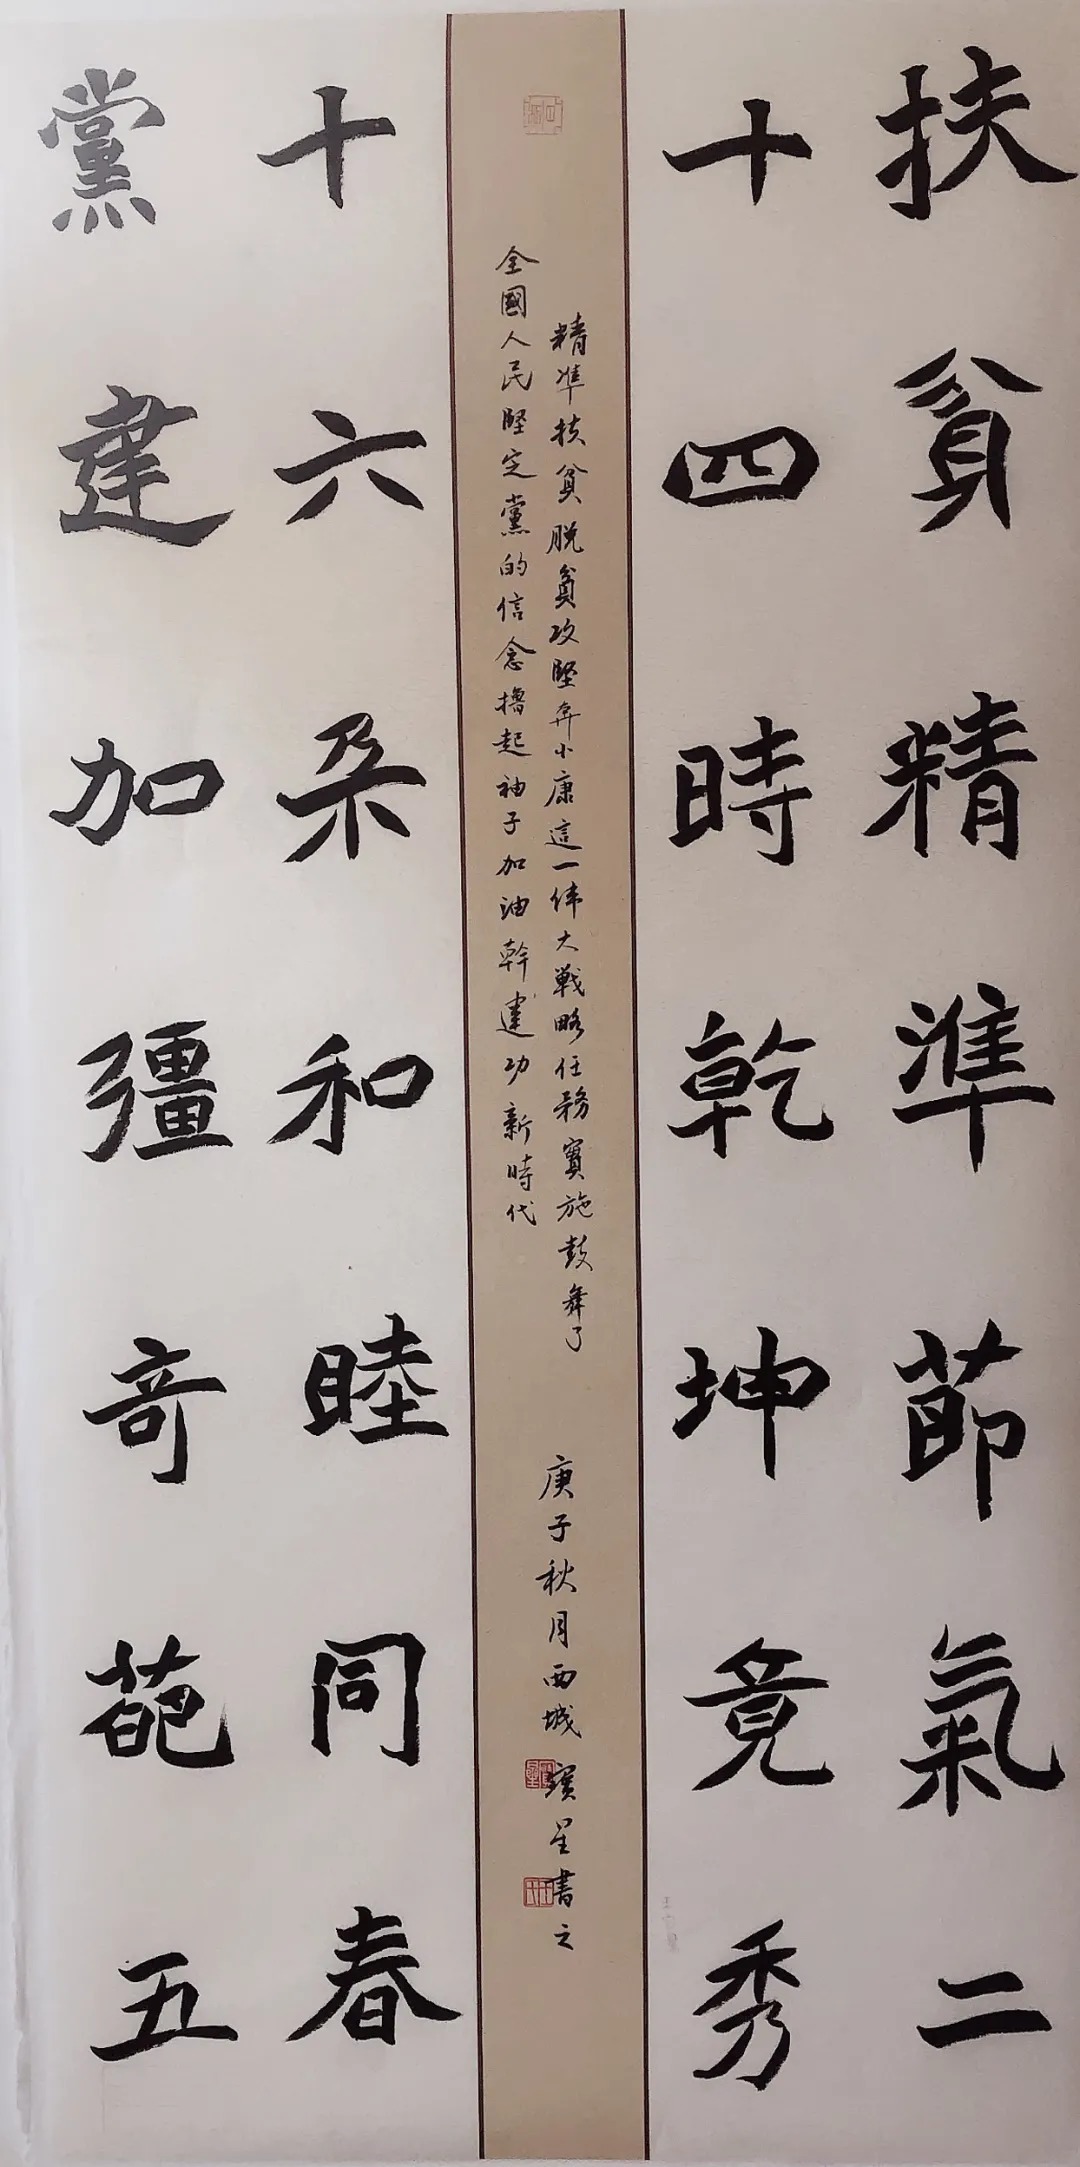 扶貧精準節氣二
十四時乾坤竟秀
精準扶貧脱貧攻堅奔小康這一偉大戰略任務實施鼓舞了
全國人民堅定黨的信念擼起袖子加油幹建功新時代
庚子秋月西城寶星書之
十六朵和睦同春
黨建加彊奇葩五